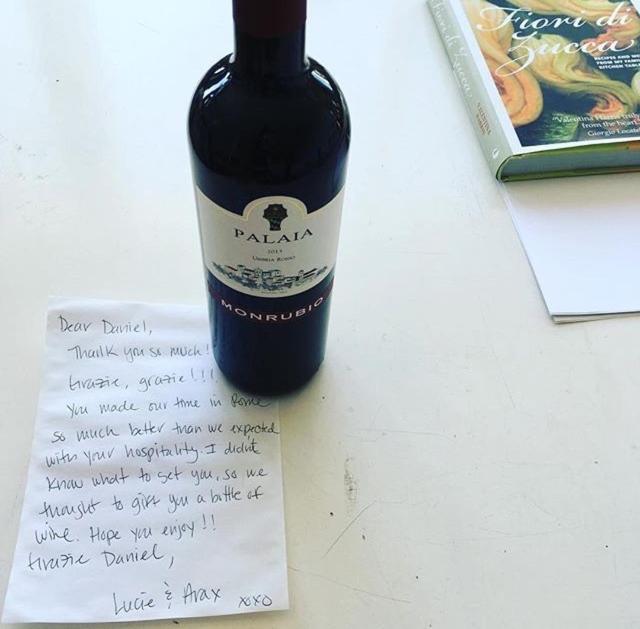 Fiori di
Zucca
RECIPES AND
FROM MY FAMIL
KITCHEN TABL
"Valentina Harris truly
from the heart"
Giorgio Locate
PALAIA
2013
UMBRIA ROSSO
MONRUBIO
Dear Daniel,
Thank you so much!
Grazie, grazie!!!
You made our time in Rome
so much better than we expected
with your hospitality. I didn't
know what to get you, so we
thought to gift you a bottle of
wine. Hope you enjoy!!
Grazie Daniel,
Lucie & Arax xoxo